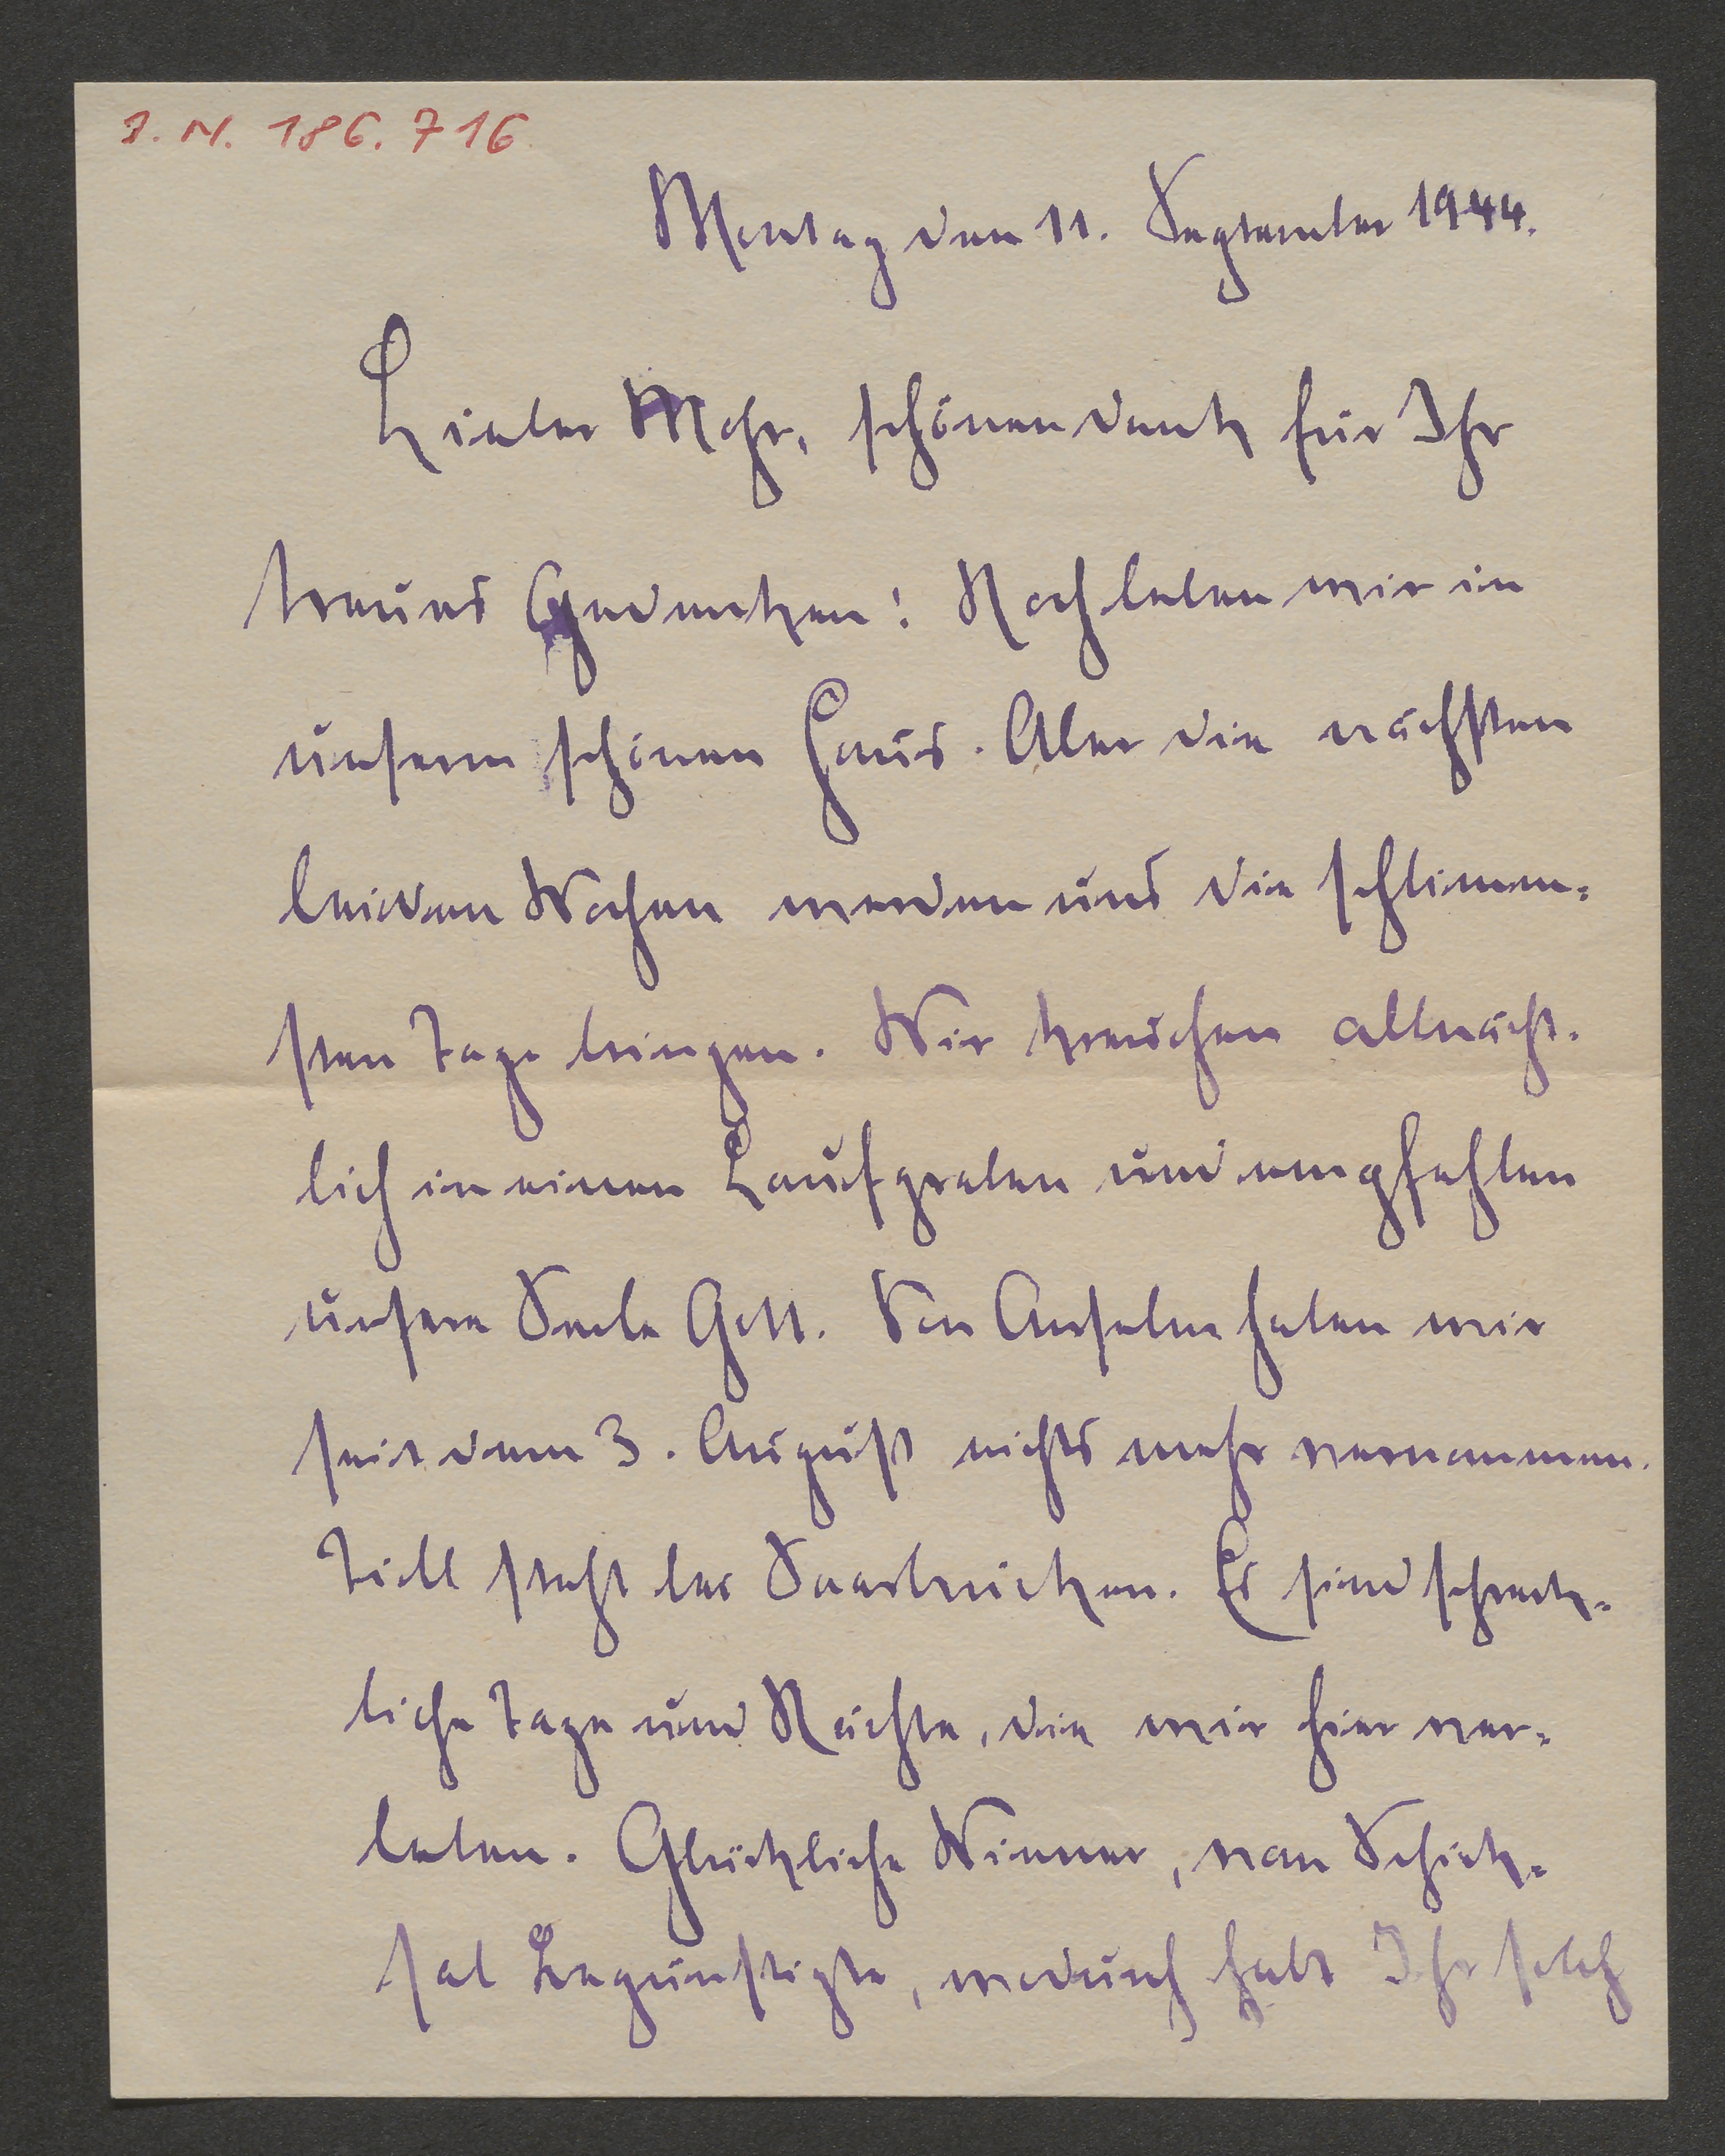 I. N. 186.716
Montag den 11. September 1944.
Lieber Mohr, schönen Dank für Ihr
treues Gedenken! Noch leben wir in
unserm schönen Haus. Aber die nächsten
beiden Wochen werden uns die schlimm-
sten Tage bringen. Wir kreuchen allnächt-
lich in einen Laufgraben und empfehlen
unsere Seele Gott. Von Anselm haben wir
seit dem 3. August nichts mehr vernommen.
Till steht bei Saarbrücken. Es sind schreck-
liche Tage und Nächte, die wir hier ver-
leben. Glückliche Wiener, vom Schick-
sal Begünstigte, wodurch habt Ihr solch